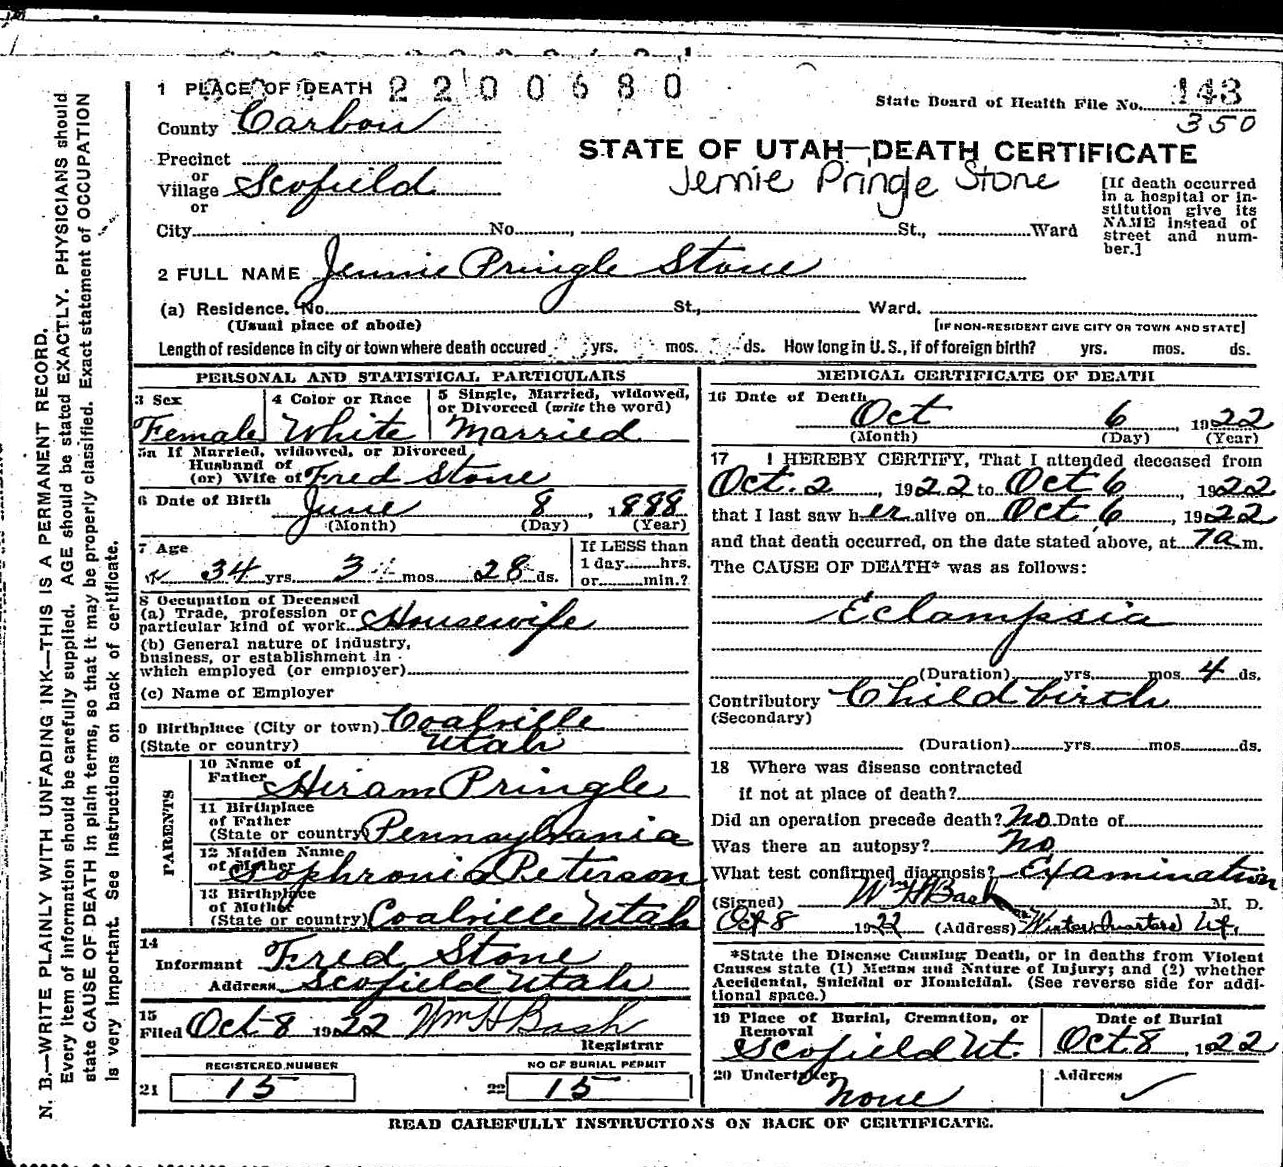 1 PLACE OF DEATH 2200680
State Board of Health File No. 143
350
County Carbon
STATE OF UTAH—DEATH CERTIFICATE
Jennie Pringle Stone
Precinct
or
Village Scofield
or
City No. , St., Ward
[If death occurred
in a hospital or in-
stitution give its
NAME instead of
street and num-
ber.]
2 FULL NAME Jennie Pringle Stone
(a) Residence. No. St., Ward.
(Usual place of abode) [IF NON-RESIDENT GIVE CITY OR TOWN AND STATE]
Length of residence in city or town where death occured yrs. mos. ds. How long in U. S., if of foreign birth? yrs. mos. ds.
PERSONAL AND STATISTICAL PARTICULARS
3 Sex
Female
4 Color or Race
White
5 Single, Married, widowed,
or Divorced (write the word)
Married
5a If Married, widowed, or Divorced
Husband of
(or) Wife of Fred Stone
6 Date of Birth June 8, 1888
(Month) (Day) (Year)
7 Age
34 yrs. 3 mos. 28 ds.
If LESS than
1 day hrs.
or min.?
8 Occupation of Deceased
(a) Trade, profession or
particular kind of work Housewife
(b) General nature of industry,
business, or establishment in
which employed (or employer)
(c) Name of Employer
9 Birthplace (City or town) Coalville
(State or country) Utah
PARENTS
10 Name of
Father Hiram Pringle
11 Birthplace
of Father
(State or country) Pennsylvania
12 Maiden Name
of Mother Sophronia Peterson
13 Birthplace
of Mother
(State or country) Coalville Utah
14
Informant Fred Stone
Address Scofield Utah
15
Filed Oct 8 1922 Wm H Bash
Registrar
REGISTERED NUMBER
21 15
NO OF BURIAL PERMIT
22 15
MEDICAL CERTIFICATE OF DEATH
16 Date of Death
Oct 6, 1922
(Month) (Day) (Year)
17 I HEREBY CERTIFY, That I attended deceased from
Oct. 2, 1922 to Oct 6, 1922
that I last saw her alive on Oct 6, 1922
and that death occurred, on the date stated above, at 7a m.
The CAUSE OF DEATH* was as follows:
Eclampsia
(Duration) yrs. mos 4 ds.
Contributory Child birth
(Secondary)
(Duration) yrs mos ds.
18 Where was disease contracted
if not at place of death?
Did an operation precede death? No. Date of
Was there an autopsy? No
What test confirmed diagnosis? Examination
(Signed) Wm H Bash M. D.
Oct 8 1922 (Address) Winter Quarters Ut.
*State the Disease Causing Death, or in deaths from Violent
Causes state (1) Means and Nature of Injury; and (2) whether
Accidental, Suicidal or Homicidal. (See reverse side for addi-
tional space.)
19 Place of Burial, Cremation, or
Removal
Scofield Ut.
Date of Burial
Oct 8, 1922
20 Undertaker
None
Address
READ CAREFULLY INSTRUCTIONS ON BACK OF CERTIFICATE.
N. B.—WRITE PLAINLY WITH UNFADING INK—THIS IS A PERMANENT RECORD.
Every item of information should be carefully supplied. AGE should be stated EXACTLY. PHYSICIANS should
state CAUSE OF DEATH in plain terms, so that it may be properly classified. Exact statement of OCCUPATION
is very important. See instructions on back of certificate.